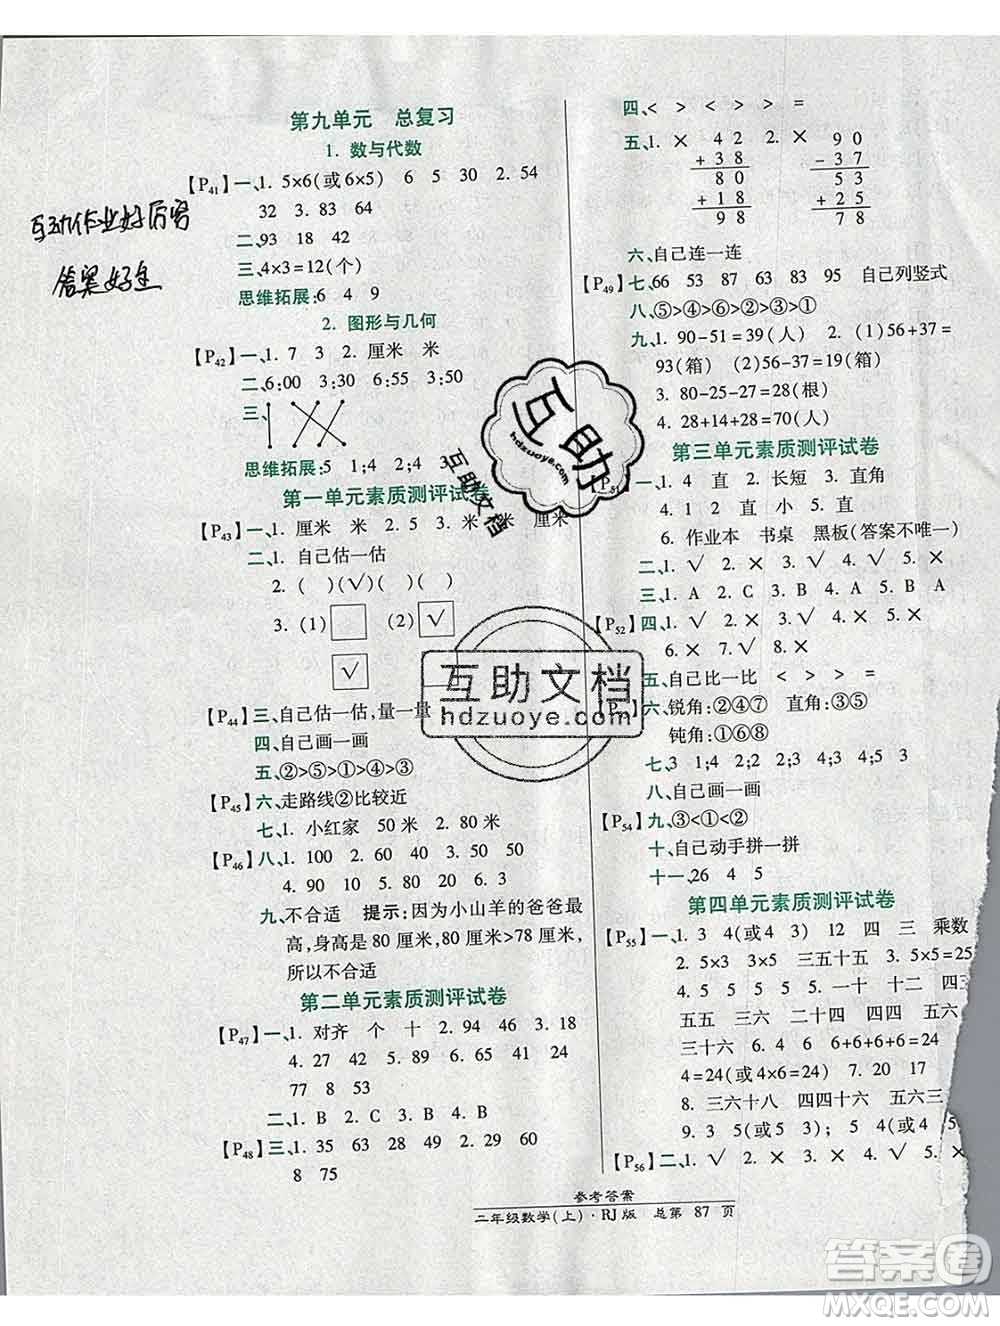 第九单元 总复习
1. 数与代数
【P41】一、1. 5×6(或6×5) 6 5 30 2. 54
32 3. 83 64
二、93 18 42
三、4×3=12(个)
思维拓展:6 4 9
2. 图形与几何
【P42】一、1. 7 3 2. 厘米 米
二、6:00 3:30 6:55 4:50
三、
思维拓展:5 1;4 2;4 3
第一单元素质测评试卷
【P43】一、1. 厘米 米 2. 5 3. 米 米 厘米
二、1. 自己估一估
2. ( )(√)( )( )
3. (1) (2) √
√
【P44】三、自己估一估,量一量
四、自己画一画
五、②>⑤>①>④>③
【P45】六、走路线②比较近
七、1. 小红家 50 米 2. 80 米
【P46】八、1. 100 2. 40 3. 50 50
4. 90 5. 20 6. 3
九、不合适 提示:因为小山羊的爸爸最
高,身高是 80 厘米,80 厘米>78 厘米,
所以不合适
第二单元素质测评试卷
【P47】一、1. 对齐 个 十 2. 94 46 3. 18
4. 27 42 5. 89 6. 50 7. 56
77 8 53
二、1. B 2. C 3. B 4. B
【P48】三、1. 35 63 28 49 29 60
8 75
四、< > < > > =
五、1. × 42 2. × 90
+38 -37
80 53
+18 +25
98 78
六、自己连一连
【P49】七、66 53 87 63 83 95 自己列竖式
八、⑤>④>⑥>②>③>①
九、1. 90-51=39(人) 2. (1)56+37=
93(箱) (2)56-37=19(箱)
3. 80-25-27=28(根)
4. 28+14+28=70(人)
第三单元素质测评试卷
【P51】一、1. 4 直 2. 长短 3. 直角
4. 1 2 直 小 5. 直
6. 作业本 书桌 黑板(答案不唯一)
二、1. √ 2. × 3. √ 4. √ 5. ×
三、1. A 2. C 3. B 4. A 5. A
【P52】四、1. √ 2. × 3. √ 4. √ 5. ×
6. × 7. √ 8. ×
五、自己比一比 < > > =
六、锐角:②④⑦ 直角:③⑤
钝角:①⑥⑧
七、3 1;4 2;2 2;3 4;5 3
八、自己画一画
【P54】九、③<①<②
十、自己动手拼一拼
十一、26 4 5
第四单元素质测评试卷
【P55】一、1. 3 4(或4 3) 12 四 三 乘数
2. 5×3 3×5 三五十五 3. 5×5=25
二五
五五 三六 二四
三十六 6. 4 6 6+6+6+6=24
4=24(或4×6=24) 7. 20 15
8. 三六十八 四四十六 三五
9. 3 5(或5 3)
【P56】二、1. √ 2. × 3. × 4. √ 5. ×
参考答案
二年级数学(上)·RJ版 总第 87 页
互动作业好厉害
答案好全
互助
hdzuoye.com
互助文档
互助文档
hdzuoye.com
答案圈
MXQE.COM